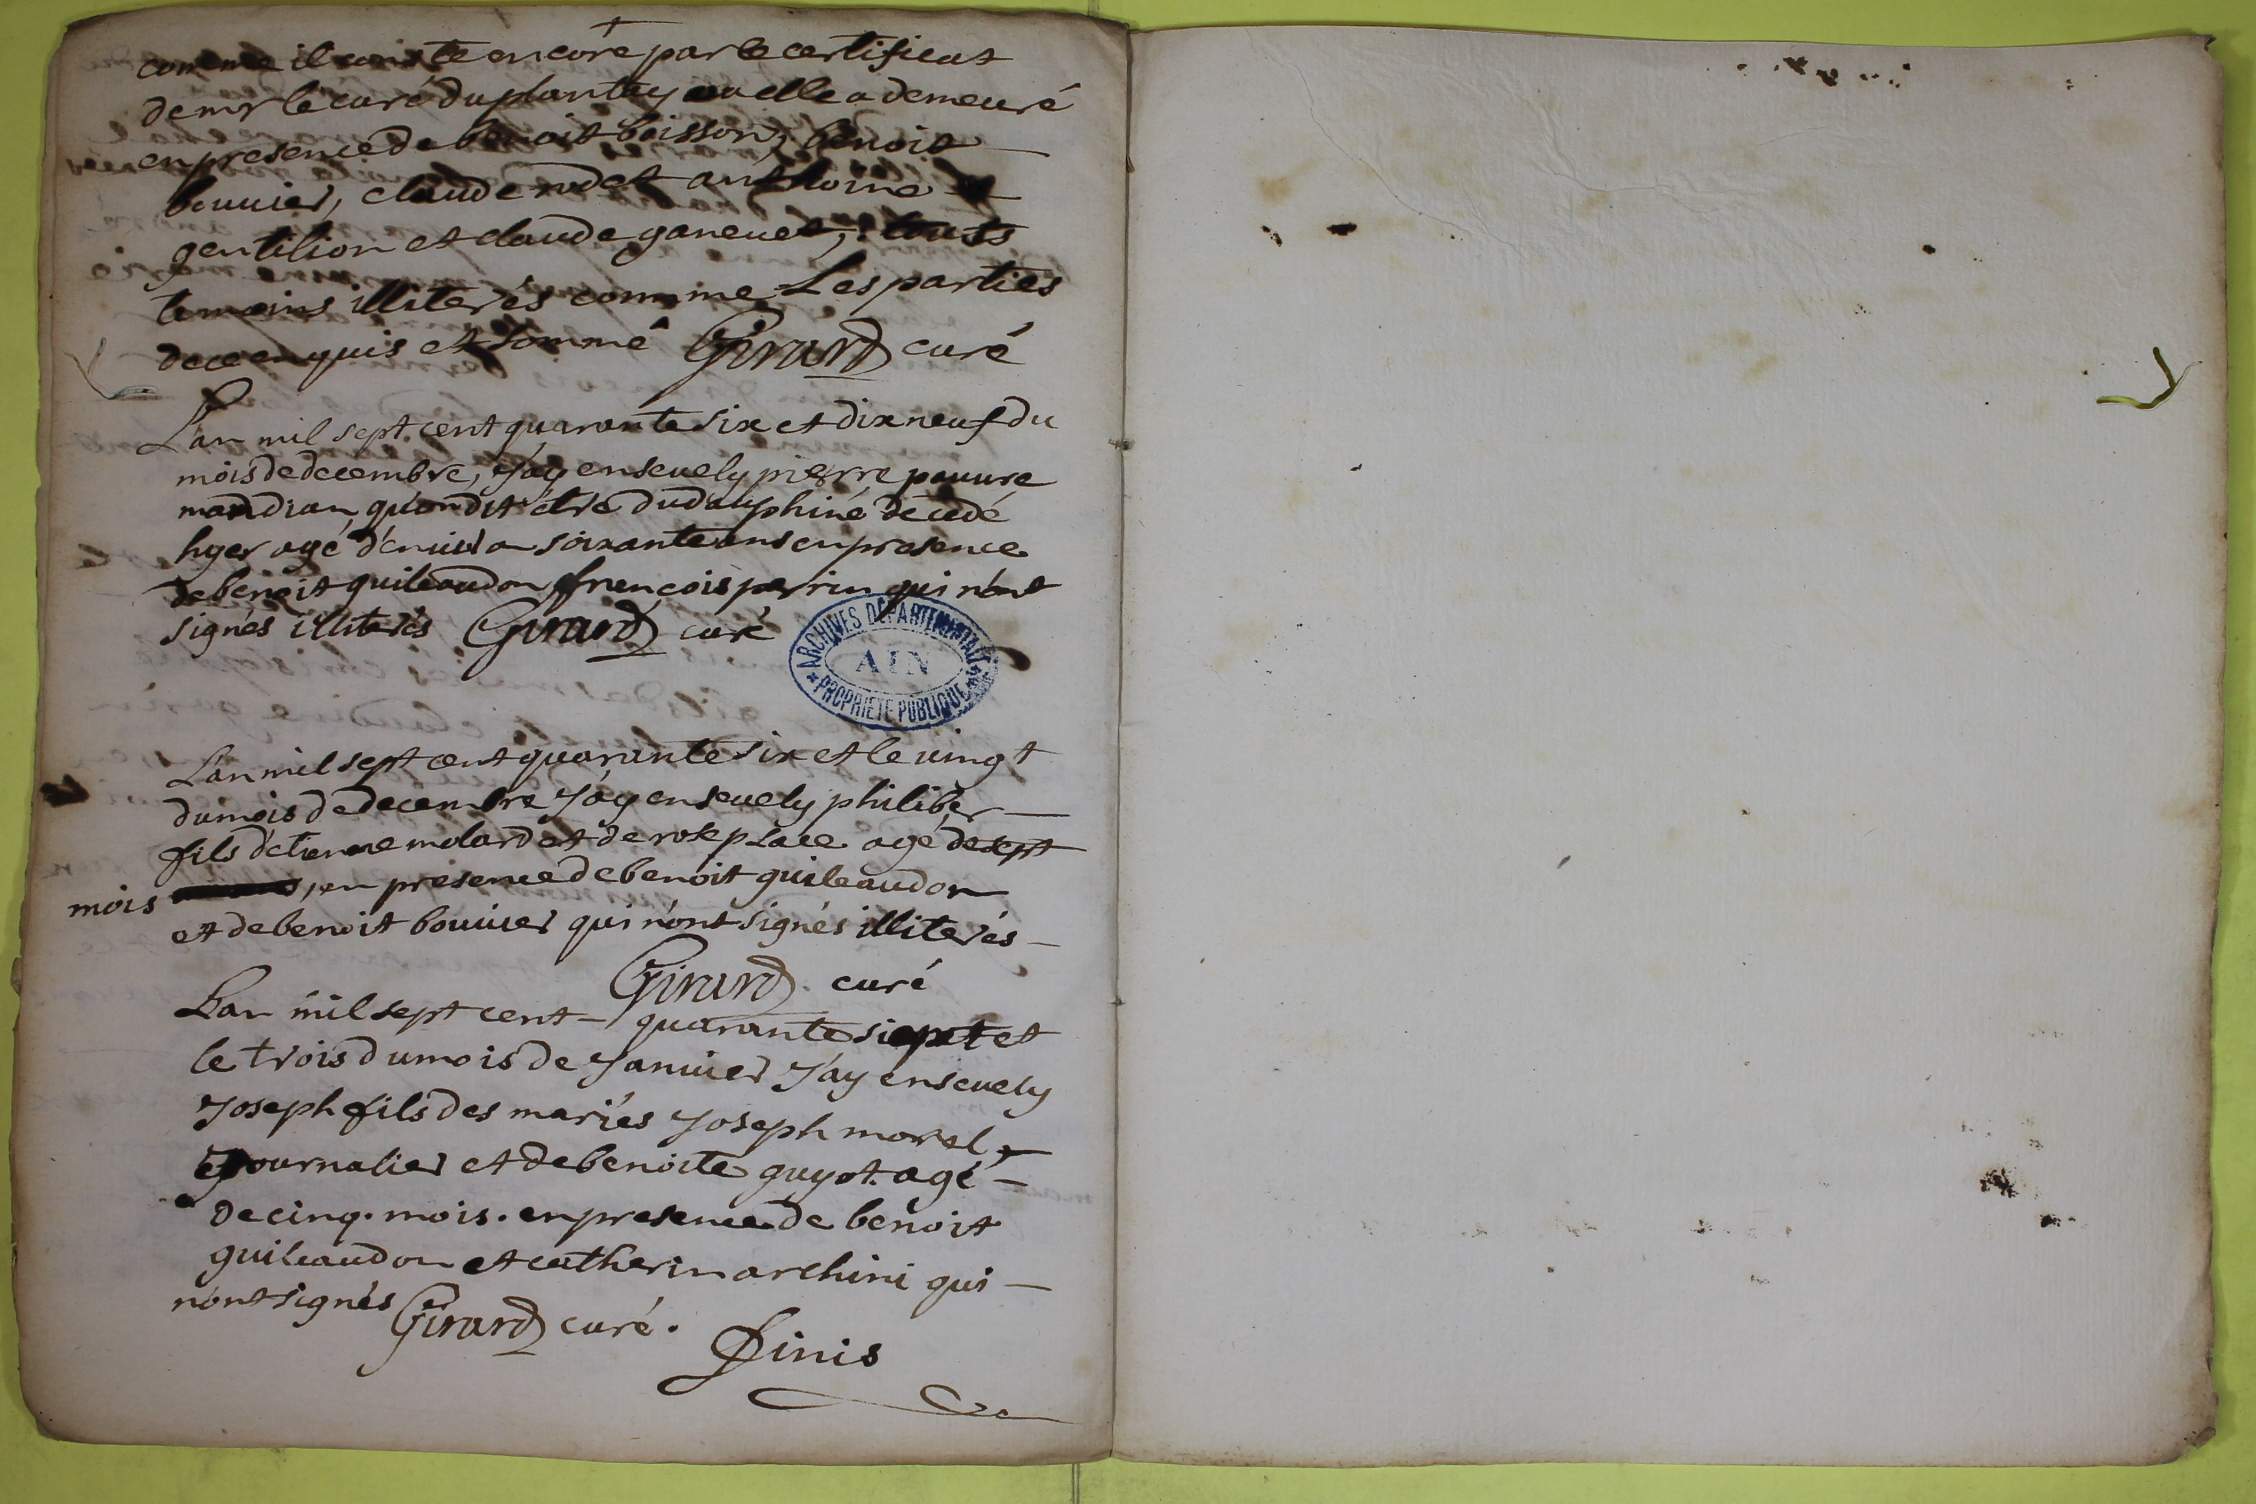 comme il conste encore par le certificat
de mr le curé du plantay ou elle a demeuré
en presence de benoit boisson, benoit
bouvier, claude rodet anthoine
gentilion et claude ganevet, touts
temoins illiterés comme Les parties
de ce enquis et sommé Girard curé
L'an mil sept cent quarante six et dix neuf du
mois de decembre, J'ay ensevely pierre pauvre
mandian qu'on dit être du dauphiné décédé
hyer agé d'environ soixante ans en presence
de benoit guileaudon françois perrin qui n'ont
signés illiterés Girard curé
ARCHIVES DÉPARTEMENTALES
AIN
PROPRIÉTÉ PUBLIQUE
L'an mil sept cent quarante six et le vingt
du mois de decembre J'ay ensevely philiber
fils d'etienne molard et de rose place agé de sept
mois, en presence de benoit guileaudon
et de benoit bouvier qui n'ont signés illiterés
Girard curé
L'an mil sept cent quarante sept et
le trois du mois de Janvier J'ay ensevely
Joseph fils des mariés Joseph morel
journalier et de benoite guyot. agé
de cinq. mois. en presence de benoit
guileaudon et catherin archini qui
n'ont signés Girard curé.
Finis